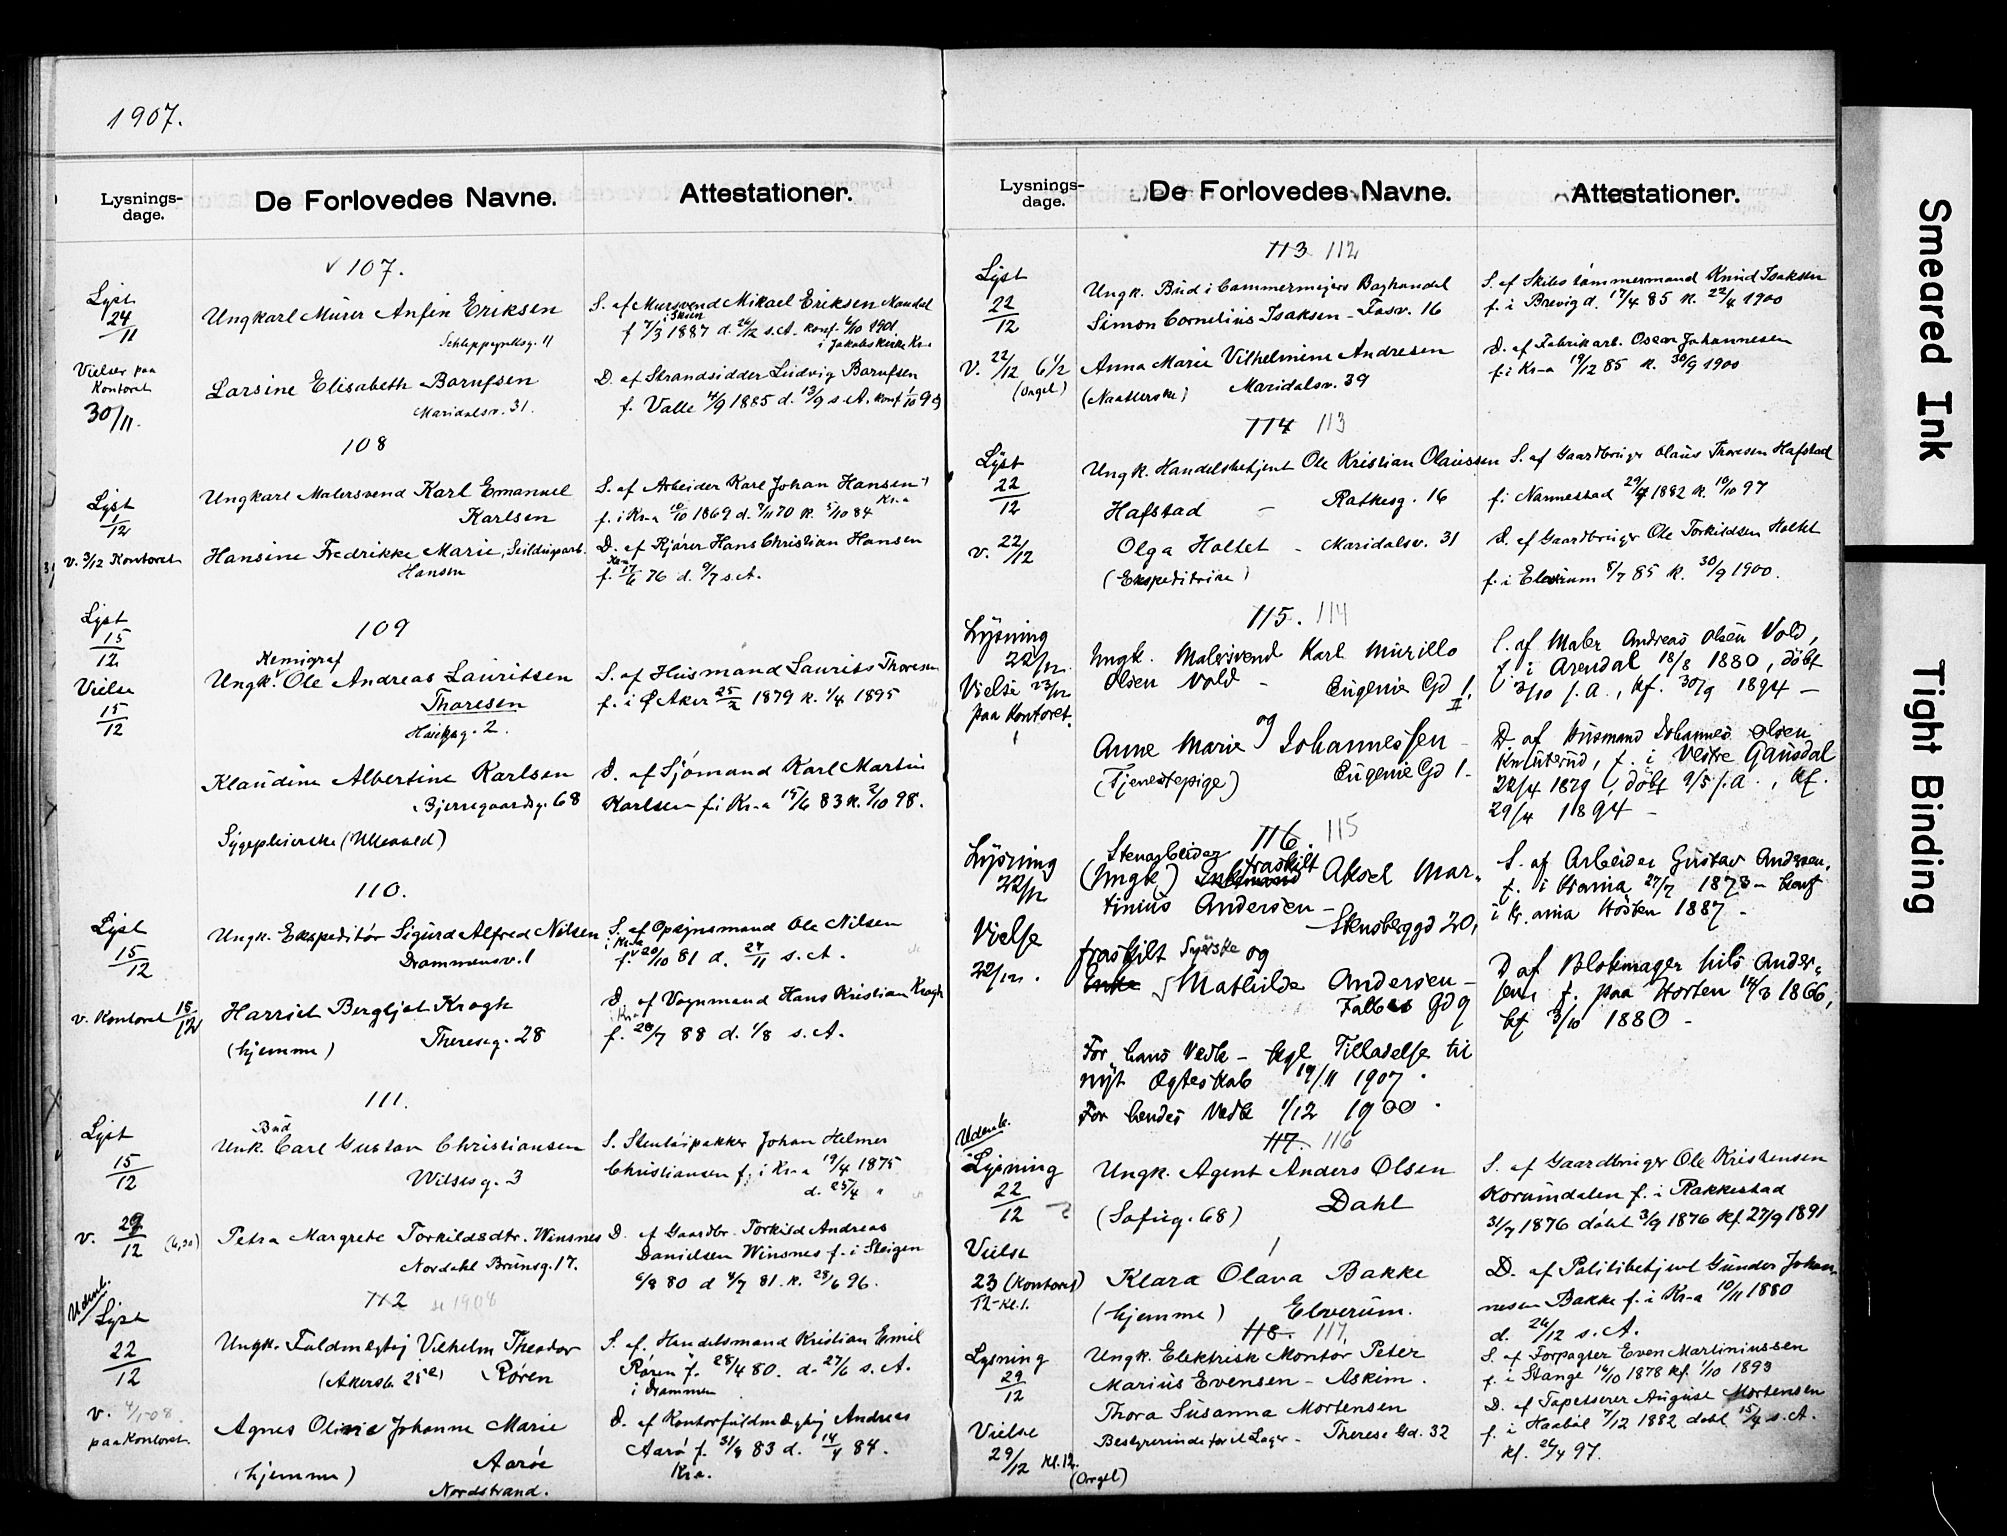 1907.
Lysnings-
dage.
De Forlovedes Navne.
Attestationer.
107.
Lyst
24/11
Ungkarl Mürer Anfin Eriksen
Schleppegrellsg. 11
S. af Mursvend Mikael Eriksen Mandal
f 7/3 1887 d. 26/2 s.A. konf. 6/10 1901
i Skien
i Jakobs Kirke Kr.a
Vielser paa
Kontoret
30/11.
Larsine Elisabeth Barufsen
Maridalsv. 31.
D. af Strandsidder Ludvig Barufsen
f. Valle 4/9 1885 d. 13/9 s.A. konf 1/10 9
108
Lyst
1/12
Ungkarl Malersvend Karl Emanuel
Karlsen
S. af Arbeider Karl Johan Hansen
Kr.a
f. i Kr-a 10/10 1869 d. 7/11 70 K. 5/10 84
v. 3/12 Kontoret
Hansine Fredrikke Marie, Seildugsarb.
Hansen
D. af Kjører Hans Christian Hansen
Kr.a
f. 17/6 76 d. 9/7 s.A.
109
Lyst
15/12
Kemigraf
Ungk. Ole Andreas Lauritsen
Thoresen
S. af Husmand Laurits Thoresen
f. i Ø Aker 25/2 1879 K. 1/4 1895
Vielse
15/12
Klaudine Albertine Karlsen
Bjerregaardsg. 68
Sygepleierske (Ullevold)
D. af Sjømand Karl Martin
Karlsen f i Kr-a 15/6 83 K. 2/10 98.
110.
Lyst
15/12
Ungk. Ekspeditør Sigurd Alfred Nilsen
Drammensv. 1
S. af Opsynsmand Ole Nilsen
i Kr.a
f. 20/10 81 d. 27/11 s.A.
v. Kontoret 15/12
Harriet Bergljot Krogh
(hjemme) Theresesg. 28
D. af Vognmand Hans Kristian Krogh
Kr.a
f. 28/7 88 d. 1/8 s.A.
111.
Lyst
15/12
Bud
Unk. Carl Gustav Christiansen
Wilsesg. 3
S. Stentøipakker Johan Helmer
Christiansen f. i Kr-a 19/4 1875
d. 25/4 "
v. 29/12 (6,30)
Petra Margrete Torkildsdtr. Winsnes
Nordahl Brunsg. 17.
D. af Gaardbr. Torkild Andreas
Danielsen Winsnes f. i Steigen
6/8 80 d 4/7 81. K. 28/6 96.
112 se 1908
Udenb.
Lyst
22/12
Ungk. Fuldmegtig Vilhelm Theodor
Røren
S. af. Handelsmand Kristian Emil
Røren f. 28/4 80. d. 27/6 s.A.
i Drammen
v. 4/1-08.
paa Kontoret.
Agnes Olivia Johanne Marie
Aarøe
(hjemme)
Nordstrand.
D. af Kontorfuldmægtig Andreas
Aarø f. 31/8 83 d. 14/4 84.
Kr.a.
Lysnings-
dage.
De Forlovedes Navne.
Attestationer.
113 112
Lyst
22/12
Ungk. Bud i Cammermejers Boghandel
Simon Cornelius Isaksen – Fosv. 16
S. af Skibstømmermand Knud Isaksen
f. i Brevig d. 17/4 85 K. 22/4 1900
V. 22/12 6 1/2
(Orgel)
Anna Marie Vilhelmine Andresen
(Naatlerske) Maridalsv. 39
D. af Fabrikarb. Oscar Johannesen
f. i Kr-a 19/12 85 K. 30/9 1900
114 113
Lyst
22/12
Ungk. Handelsbetjent Ole Kristian Olaussen
Hafstad – Rathkesg. 16
S. af Gaardbruger Olaus Thoresen Hafstad
f. i Nannestad 29/7 1882 K. 10/10 97
v. 22/12
Olga Holtet – Maridalsv. 31
(Ekspeditrise)
D. af Gaardbruger Ole Torkildsen Holtet
f. i Elverum 8/7 85 K. 30/9 1900.
115. 114
Lysning
22/12.
Vielse 23/12
paa Kontoret.
Ungk. Malersvend Karl Murillo
Olsen Vold – Eugenie Gd 1,
II
S. af Maler Andreas Olsen Vold,
f. i Arendal 18/8 1880, døbt
3/10 s.A., kf. 30/9 1894 –
og
Anne Marie Johannessen –
(Tjenestepige) Eugenie Gd 1.
D. af Husmand Johannes Olsen
Knutsrud, f. i Vestre Gausdal
22/4 1879, døbt 9/5 s.A., kf.
29/4 1894 –
116. 115
Lysning
22/12
Vielse
22/12.
Stenarbeider
fraskilt
(Ungk) Enkemand Aksel Mar-
tinius Andersen –
Stensberggd 20,
S. af Arbeider Gustav Andersen,
f. i Krania 27/7 1873 – konf
i Kr.ania Høsten 1887 –
fraskilt Syerske og
Enke Mathilde Andersen –
Falbes Gd 9
D af Blokmager Nils Ander-
sen f. paa Horten 14/3 1866,
kf 3/10 1880 –
For hans Vedk – kgl Tilladelse til
nyt Ægteskab 19/11 1907.
For hendes Vedk 1/12 1900.
117. 116
Udenb.
Lysning
22/12
Ungk. Agent Anders Olsen
(Sofieg. 68) Dahl
S. af Gaardbruger Ole Kristensen
Korundalen f. i Rakkestad
31/7 1876 døbt 3/9 1876 kf 27/9 1891
Vielse
23 (Kontoret)
12 – Kl. 1.
Klara Olava Bakke
(hjemme) Elverum.
D. af Politibetjent Gunder Johan-
nesen Bakke f. i Kr-a 10/11 1880
d. 26/12 s.A.
118. 117.
Lysning
29/12
Ungk. Elektrisk Montør Peter
Marius Evensen – Askim.
S. af Forpagter Even Martiniussen
f. i Stange 16/10 1878 kf. 1/10 1893
Vielse
29/12 Kl. 12.
(Orgel)
Thora Susanna Mortensen
Bestyrerinde for et Lager – Therese Gd. 32
D. af Tapetserer August Mortensen
f. i Haabøl 7/12 1882 døbt 15/4 s.A.
kf. 26/4 97.
Smeared Ink
Tight Binding